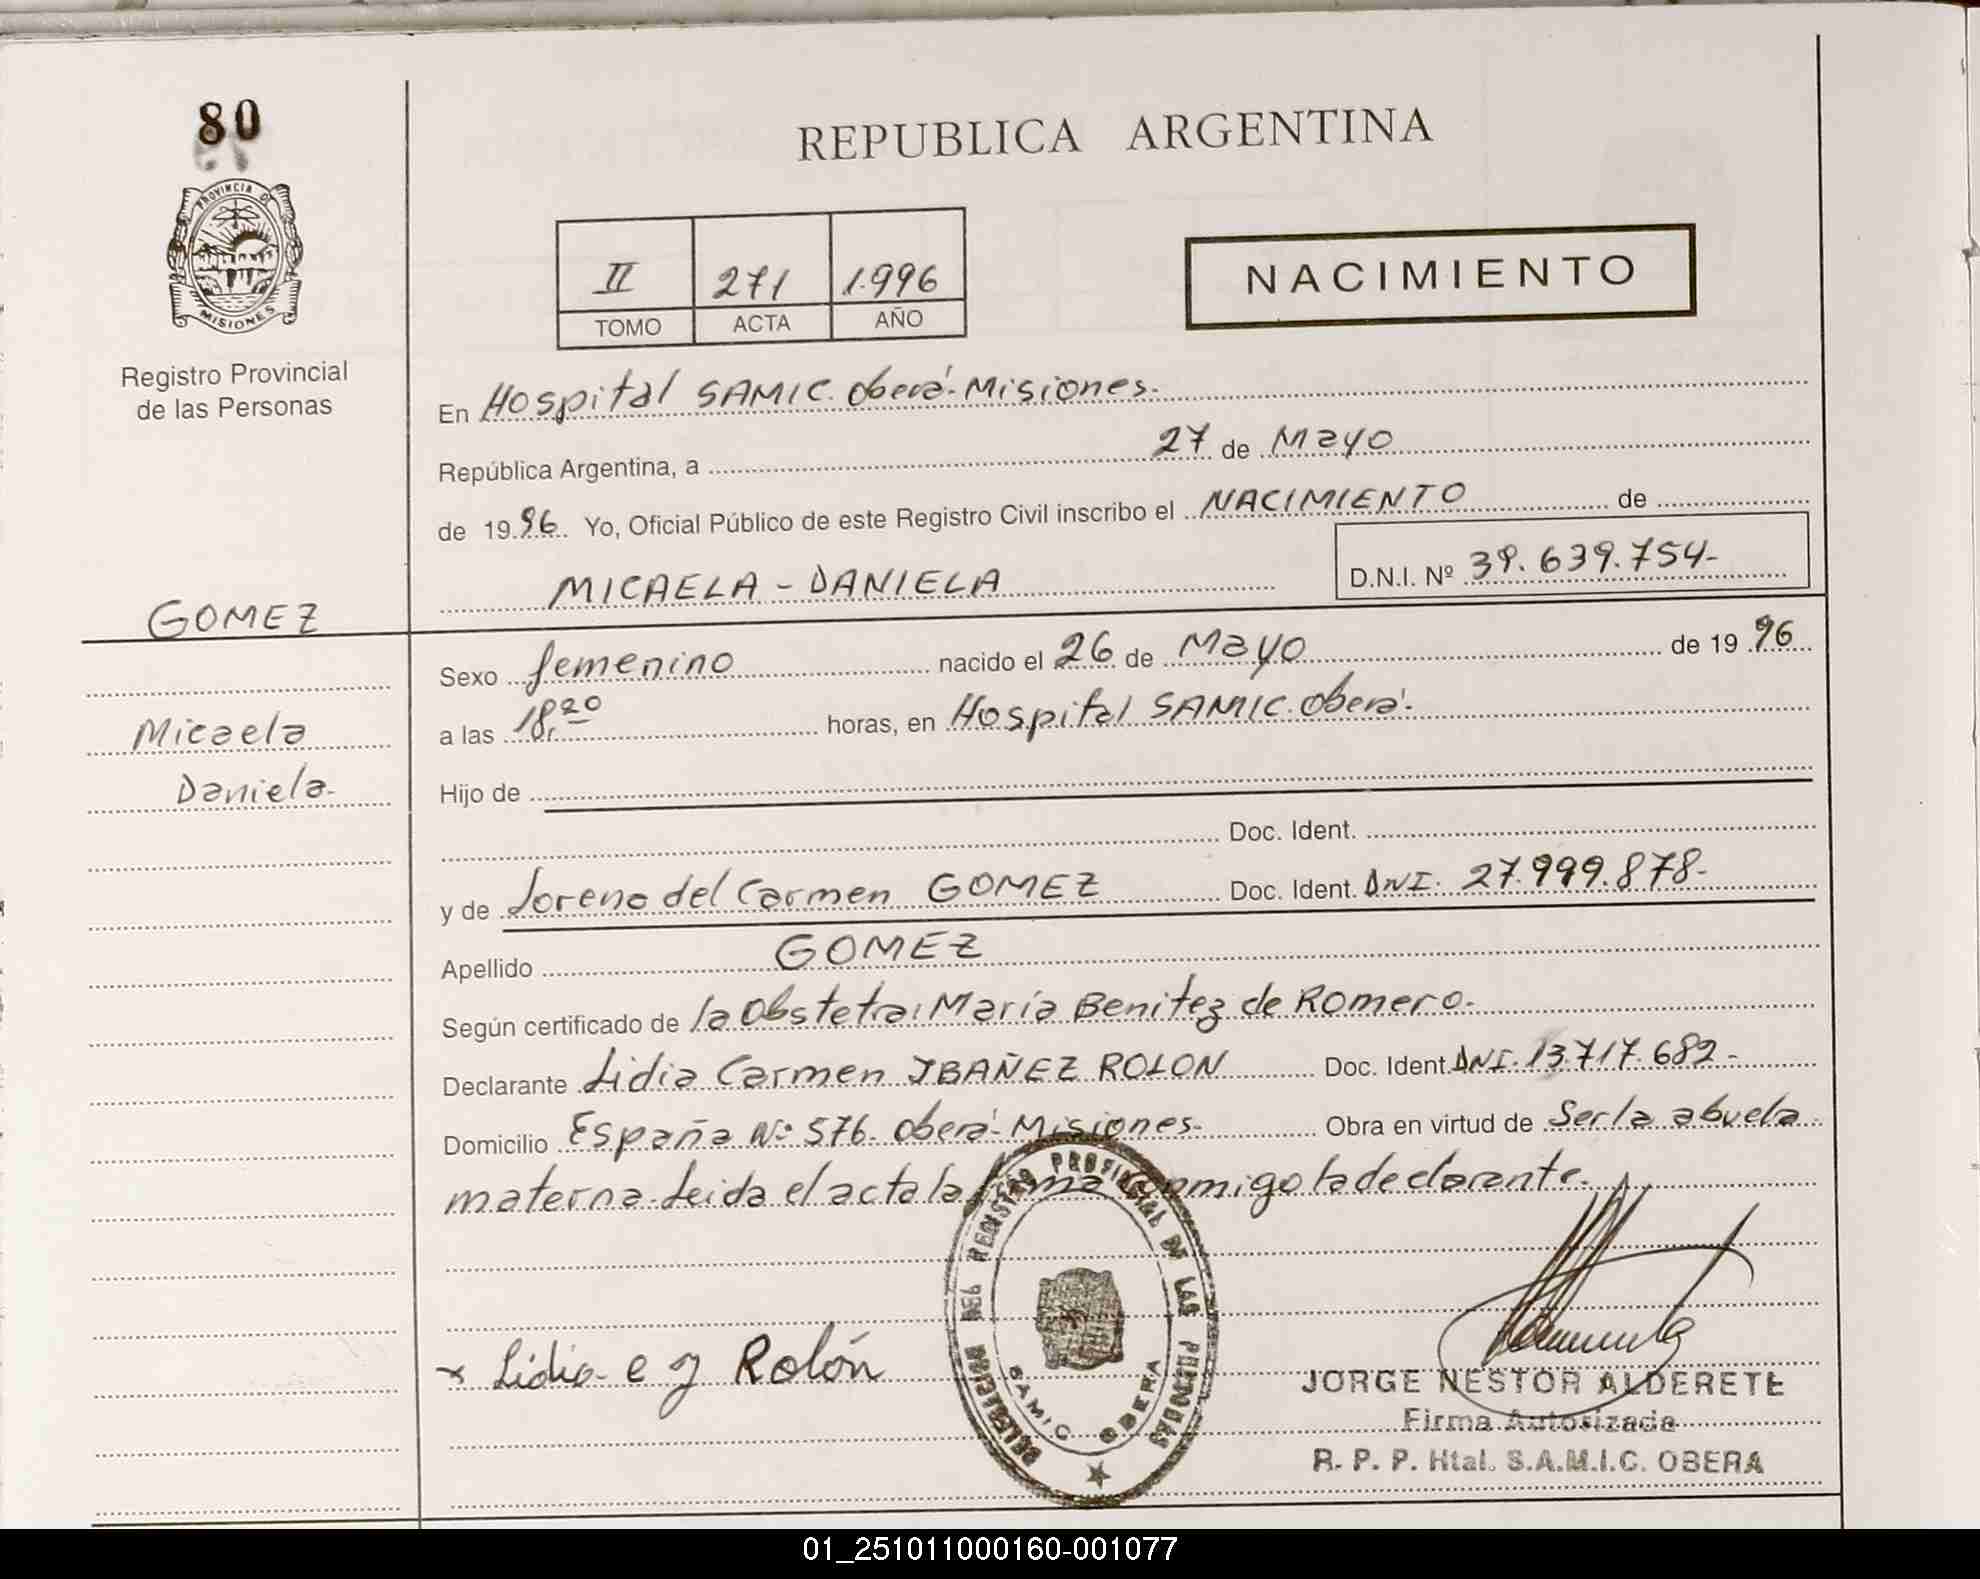 80
PROVINCIA DE
MISIONES
Registro Provincial
de las Personas
GOMEZ
Micaela
Daniela.
REPUBLICA ARGENTINA
II 271 1.996
TOMO ACTA AÑO
NACIMIENTO
En Hospital SAMIC. Oberá-Misiones.
República Argentina, a 27 de Mayo
de 1996. Yo, Oficial Público de este Registro Civil inscribo el NACIMIENTO de
MICAELA - DANIELA D.N.I. Nº 39.639.754-
Sexo femenino nacido el 26 de Mayo de 1996
a las 18,20 horas, en Hospital SAMIC. Oberá.
Hijo de
Doc. Ident.
y de Lorena del Carmen GOMEZ Doc. Ident. DNI. 27.999.878-
Apellido GOMEZ
Según certificado de la Obstetra: María Benitez de Romero.
Declarante Lidia Carmen IBAÑEZ ROLON Doc. Ident. DNI. 13.717.682-
Domicilio España Nº 576. Oberá-Misiones. Obra en virtud de Ser la abuela
materna. Leida el acta la firma conmigo la declarante.
DELEGACION DEL REGISTRO PROVINCIAL DE LAS PERSONAS
SAMIC OBERA
x Lidia e y Rolón
JORGE NESTOR ALDERETE
Firma Autorizada
R. P. P. Htal. S.A.M.I.C. OBERA
01_251011000160-001077